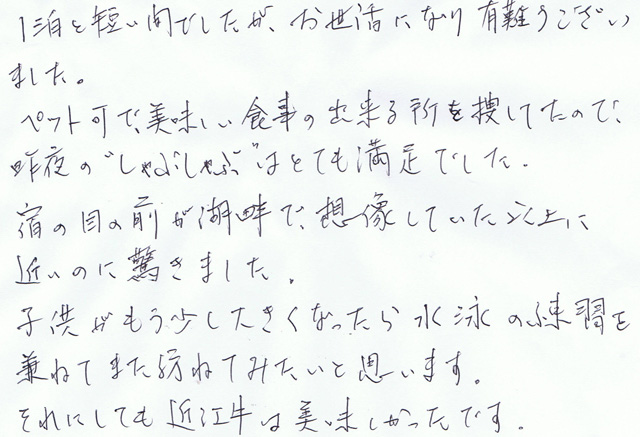 1泊と短い間でしたが、お世話になり有難うござい
ました。
ペット可で、美味しい食事の出来る所を捜してたので、
昨夜の"しゃぶしゃぶ"はとても満足でした.
宿の目の前が湖畔で、想像していた以上に
近いのに驚きました.
子供がもう少し大きくなったら水泳の練習を
兼ねてまた訪ねてみたいと思います。
それにしても近江牛は美味しかったです.